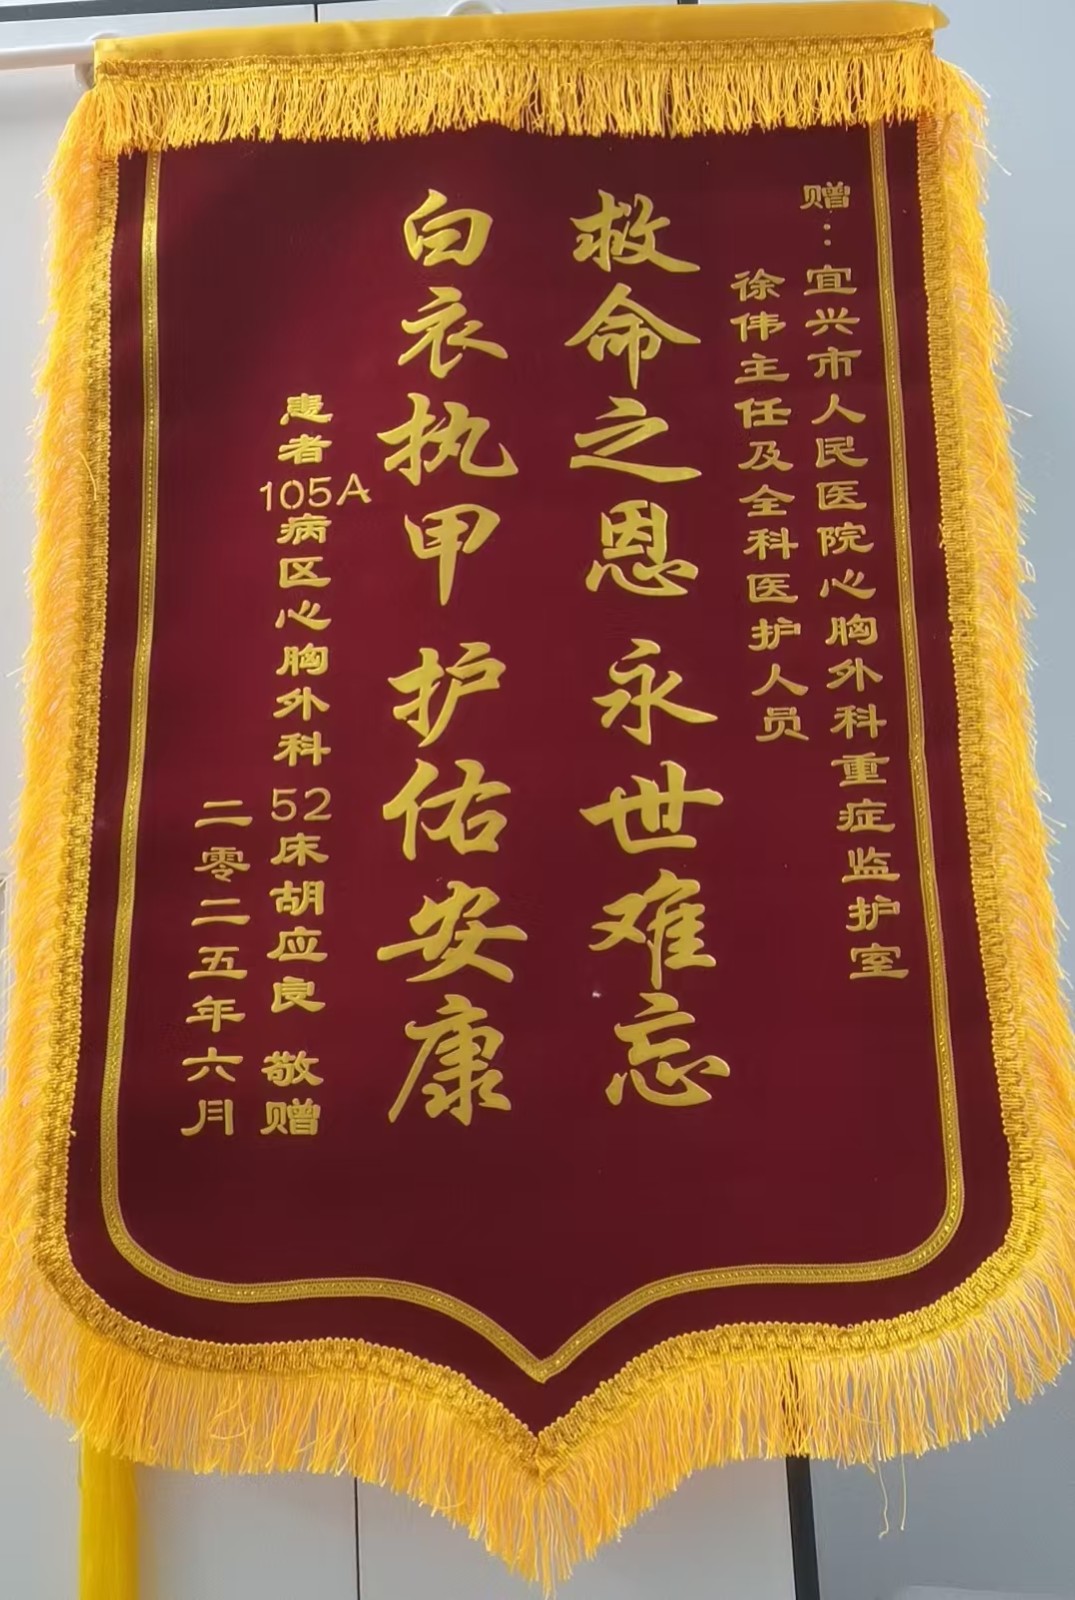 赠：宜兴市人民医院心胸外科重症监护室
徐伟主任及全科医护人员
救命之恩 永世难忘
白衣执甲 护佑安康
患者105A病区心胸外科 52床胡应良 敬赠
二零二五年六月